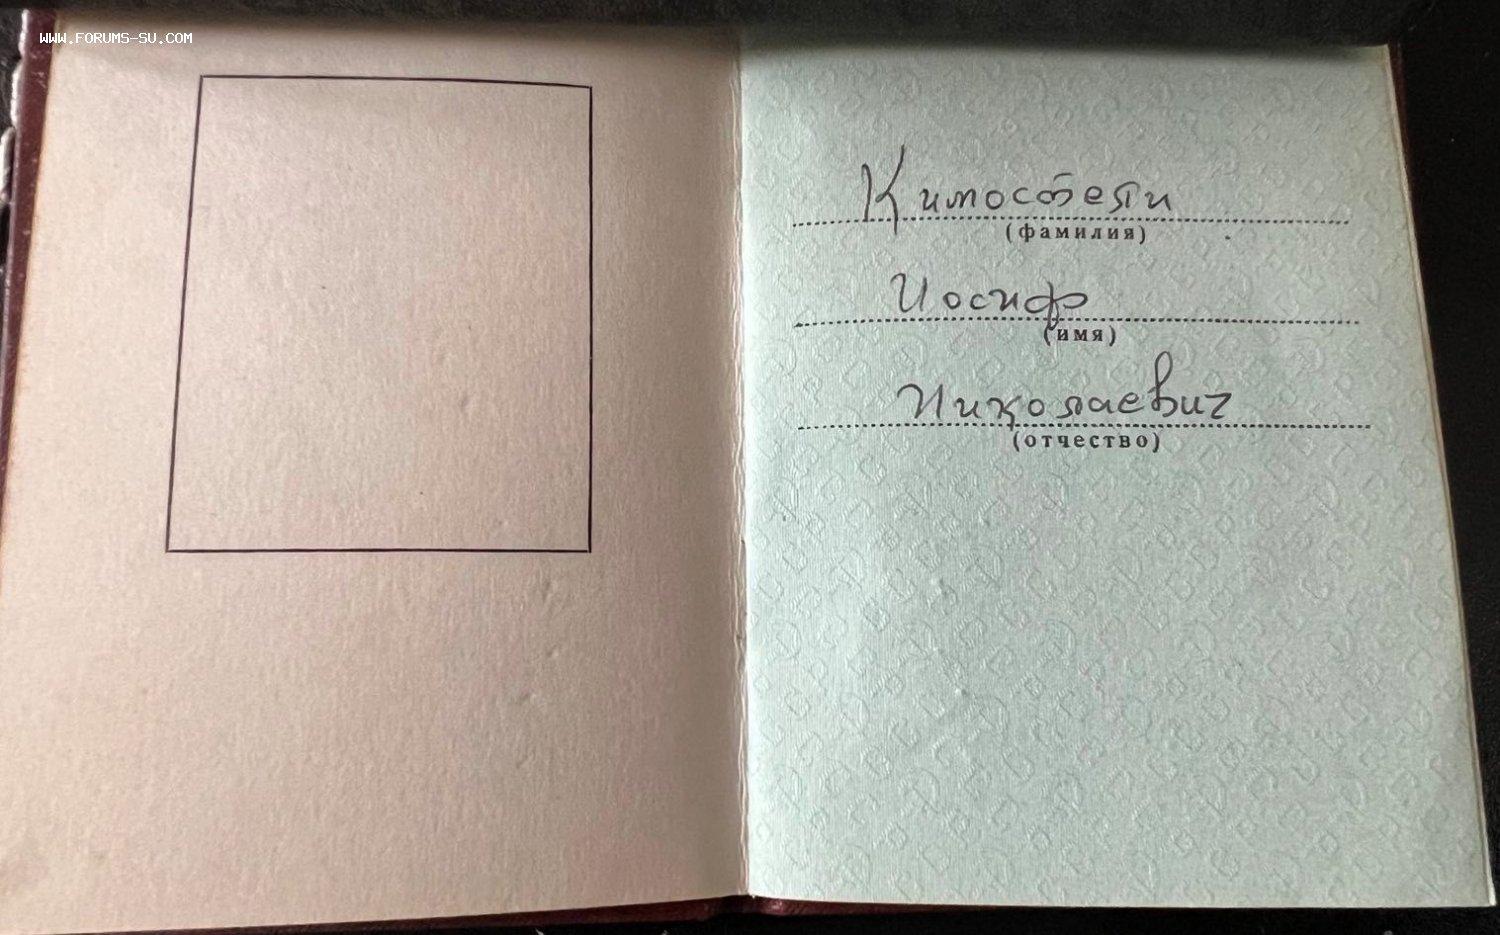 WWW.FORUMS-SU.COM
(фамилия)
Иосиф
(имя)
Николаевич
(отчество)